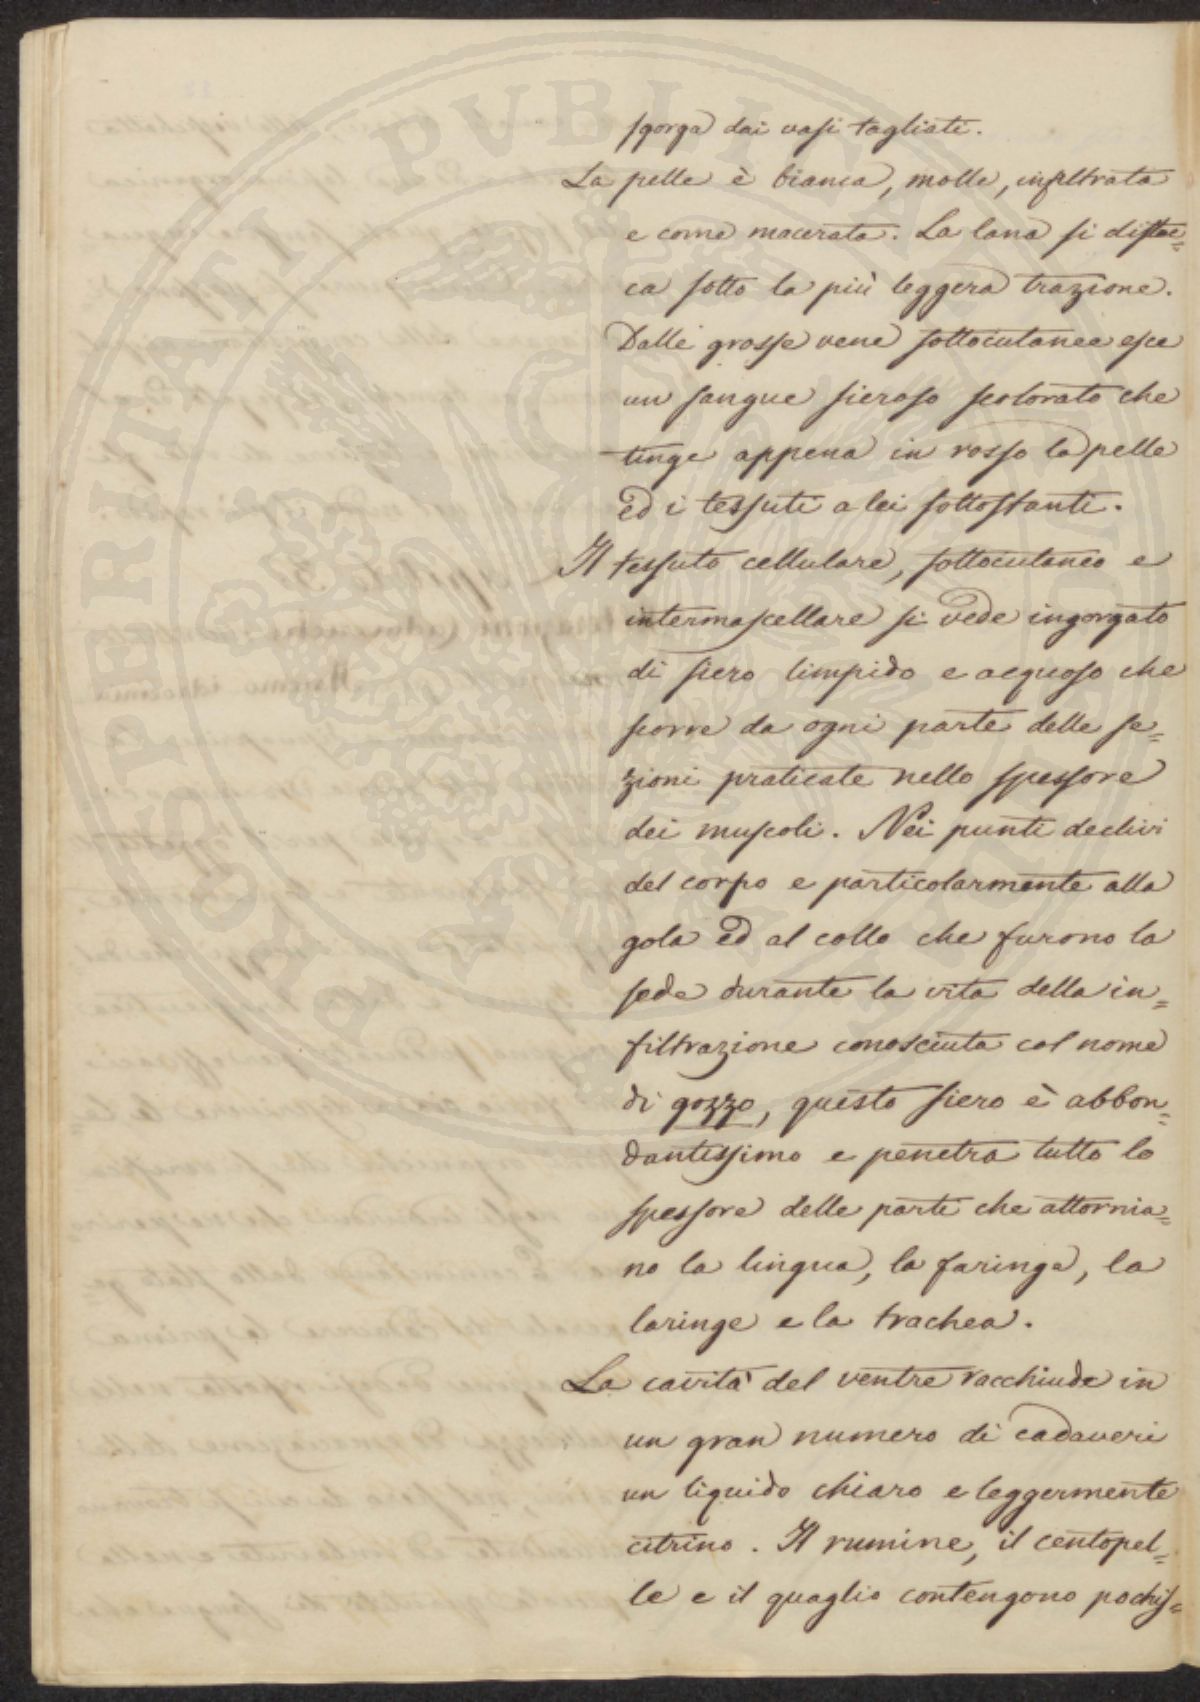 sgorga dai vasi tagliati.
La pelle è bianca, molle, infiltrata
e come macerata. La lana si distac=
ca sotto la più leggera trazione.
Dalle grosse vene sottocutanee esce
un sangue sieroso scolorato che
tinge appena in rosso la pelle
ed i tessuti a lei sottostanti.
Il tessuto cellulare, sottocutaneo e
intermascellare si vede ingorgato
di siero limpido e acquoso che
scorre da ogni parte delle se=
zioni praticate nello spessore
dei muscoli. Nei punti declivi
del corpo e particolarmente alla
gola ed al collo che furono la
sede durante la vita della in=
filtrazione conosciuta col nome
di gozzo, questo siero è abbon=
dantissimo e penetra tutto lo
spessore delle parti che attornia=
no la lingua, la faringe, la
laringe e la trachea.
La cavità del ventre racchiude in
un gran numero di cadaveri
un liquido chiaro e leggermente
citrino. Il rumine, il centopel=
le e il quaglio contengono pochis=
PROSPERITATI PUBLICAE